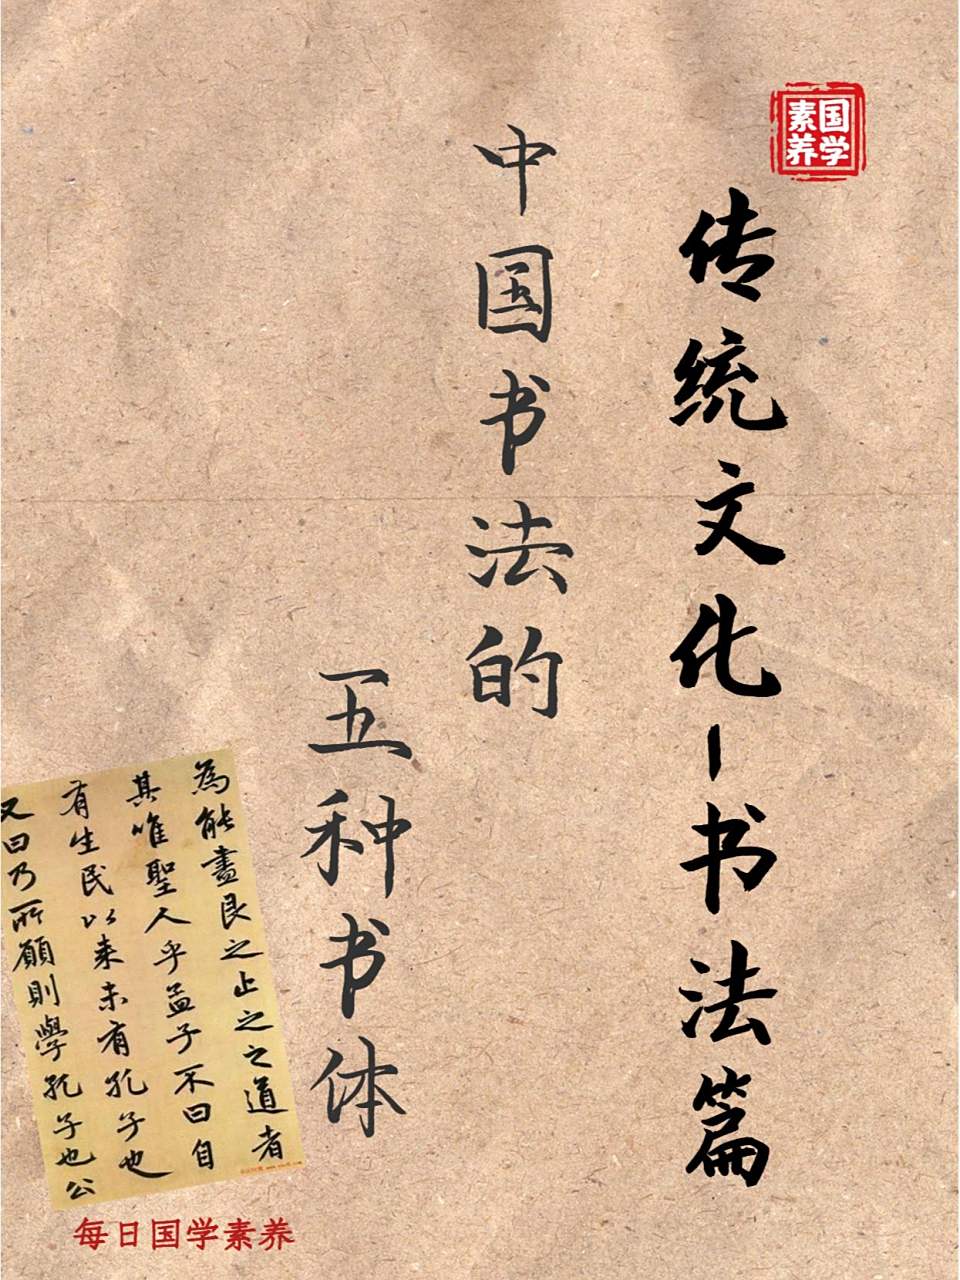 国学
素养
传统文化-书法篇
中国书法的
五种书体
為能盡艮之止之之道者
其唯聖人乎孟子不曰自
有生民以来未有孔子也
又曰乃所願則學孔子也公
每日国学素养